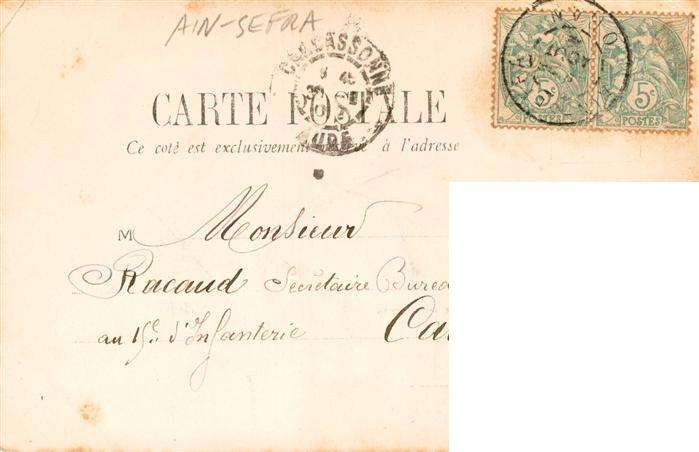 AIN-SEFRA
CARCASSONNE
AUDE
CARTE POSTALE
Ce coté est exclusivement réservé à l'adresse
5c
POSTES
5c
POSTES
M Monsieur
Racaud Secrétaire Burea
au 15e d'Infanterie Ca